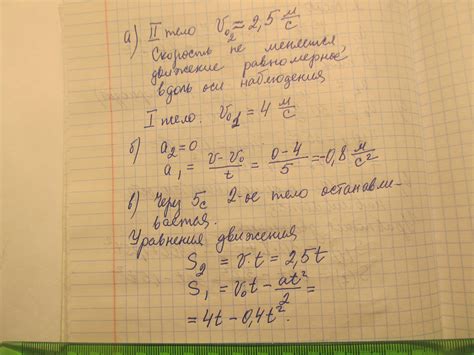 а) II тело V₀₂ = 2,5 м/с
Скорость не меняется,
движение равномерное
вдоль оси наблюдения
I тело: V₀₁ = 4 м/с
б) a₂ = 0
a₁ = (v - v₀)/t = (0 - 4)/5 = -0,8 м/с²
в) Через 5с 2-ое тело останавли-
вается.
Уравнения движения
S₂ = v t = 2,5t
S₁ = v₀t - at²/2 =
= 4t - 0,4t².